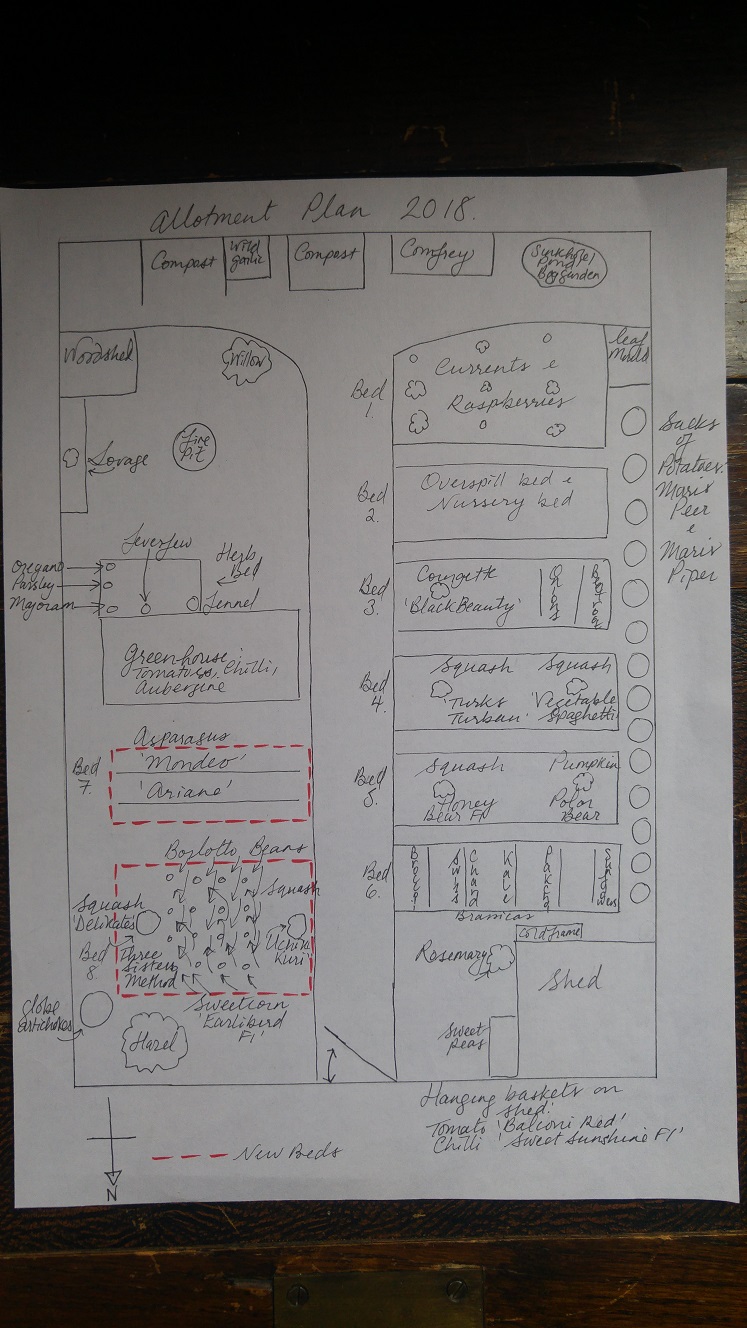 Allotment Plan 2018.
Compost
Wild
garlic
Compost
Comfrey
Sunkhole/
Pond
Bog Garden
Woodshed
Willow
Fire
Pit
Lovage
Bed
1.
Currents &
Raspberries
Leaf
Mould
Sacks
of
Potatoes:
Maris
Peer
&
Maris
Piper
Bed
2.
Overspill bed &
Nursery bed
Feverfew
Herb
Bed
Oregano
Parsley
Majoram
Fennel
Bed
3.
Courgette
'Black Beauty'
Onions
Beetroot
Greenhouse:
Tomatoes, Chilli,
Aubergine
Bed
4.
Squash
'Turks
Turban'
Squash
'Vegetable
Spaghetti'
Bed
7.
Asparasus
'Mondeo'
'Ariane'
Bed
5.
Squash
Honey
Bear F1
Pumpkin
Polar
Bear
Borlotto Beans
Squash
'Delikates'
Squash
Uchiki
Kuri'
Bed
8
Three
Sisters
Method
Sweetcorn
'Earlibird
F1'
Bed
6.
Swiss
Chard
Kale
Pak choi
Brassicas
Globe
artichokes
Hazel
Rosemary
Cold frame
Shed
Sweet
Peas
Hanging baskets on
shed:
Tomato 'Balconi Red'
Chilli 'Sweet Sunshine F1'
N
New Beds